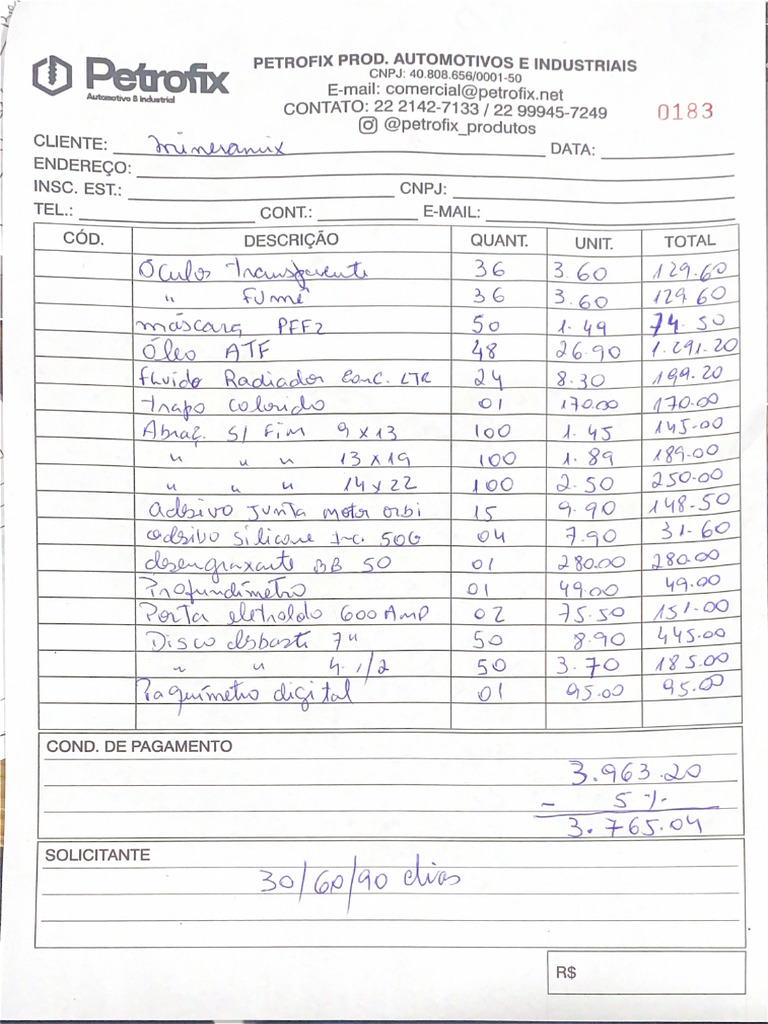 Petrofix
Automotivo & Industrial
PETROFIX PROD. AUTOMOTIVOS E INDUSTRIAIS
CNPJ: 40.808.656/0001-50
E-mail: comercial@petrofix.net
CONTATO: 22 2142-7133 / 22 99945-7249
@petrofix_produtos
0183
CLIENTE: mineramix DATA:
ENDEREÇO:
INSC. EST.: CNPJ:
TEL.: CONT.: E-MAIL:
CÓD. DESCRIÇÃO QUANT. UNIT. TOTAL
Óculos transparente 36 3.60 129.60
" FUMÊ 36 3.60 129.60
máscara PFF2 50 1.49 74.50
Óleo ATF 48 26.90 1.291.20
fluído Radiador Conc. LTR 24 8.30 199.20
trapo colorido 01 170.00 170.00
Abraç. S/ Fim 9x13 100 1.45 145.00
" " " 13x19 100 1.89 189.00
" " " 14x22 100 2.50 250.00
adesivo junta motor orbi 15 9.90 148.50
adesivo silicone Inc. 50G 04 7.90 31.60
desengraxante BB 50 01 280.00 280.00
Profundímetro 01 49.00 49.00
Porta eletroldo 600 AMP 02 75.50 151.00
Disco desbaste 7" 50 8.90 445.00
" " 4.1/2 50 3.70 185.00
Paquímetro digital 01 95.00 95.00
COND. DE PAGAMENTO
3.963.20
- 5%
3.765.04
SOLICITANTE
30/60/90 dias
R$